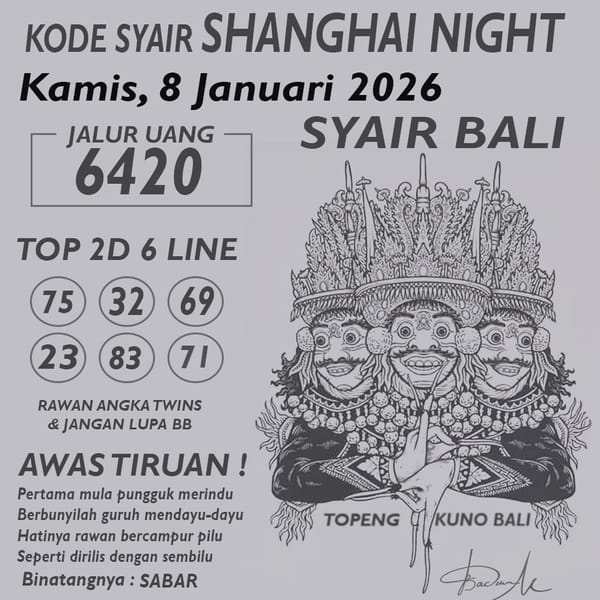 KODE SYAIR SHANGHAI NIGHT
Kamis, 8 Januari 2026
JALUR UANG
6420
SYAIR BALI
TOP 2D 6 LINE
75 32 69
23 83 71
RAWAN ANGKA TWINS
& JANGAN LUPA BB
AWAS TIRUAN !
Pertama mula pungguk merindu
Berbunyilah guruh mendayu-dayu
Hatinya rawan bercampur pilu
Seperti dirilis dengan sembilu
Binatangnya : SABAR
TOPENG KUNO BALI